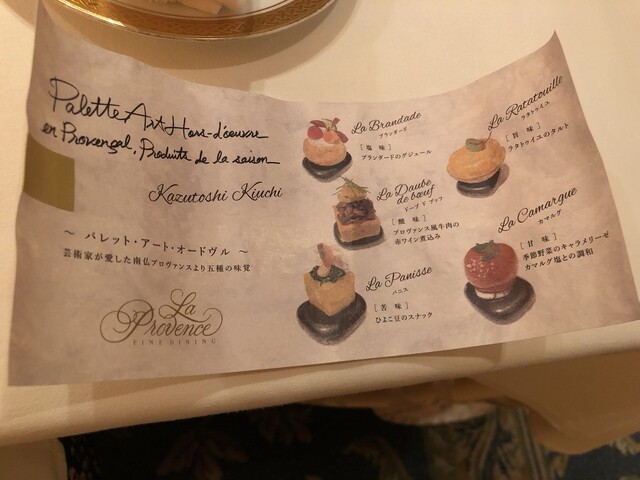 Palette Art Hors-d'oeuvre
en Provençal, Produits de la saison
Kazutoshi Kiuchi
～ パレット・アート・オードヴル ～
芸術家が愛した南仏プロヴァンスより五種の味覚
La
Provence
FINE DINING
La Brandade
ブランダード
［塩 味］
ブランダードのグジェール
La Daube
de bœuf
ドーブ ド ブッフ
［酸 味］
プロヴァンス風牛肉の
赤ワイン煮込み
La Panisse
パニス
［苦 味］
ひよこ豆のスナック
La Ratatouille
ラタトゥイユ
［旨 味］
ラタトゥイユのタルト
La Camargue
カマルグ
［甘 味］
季節野菜のキャラメリーゼ
カマルグ塩との調和